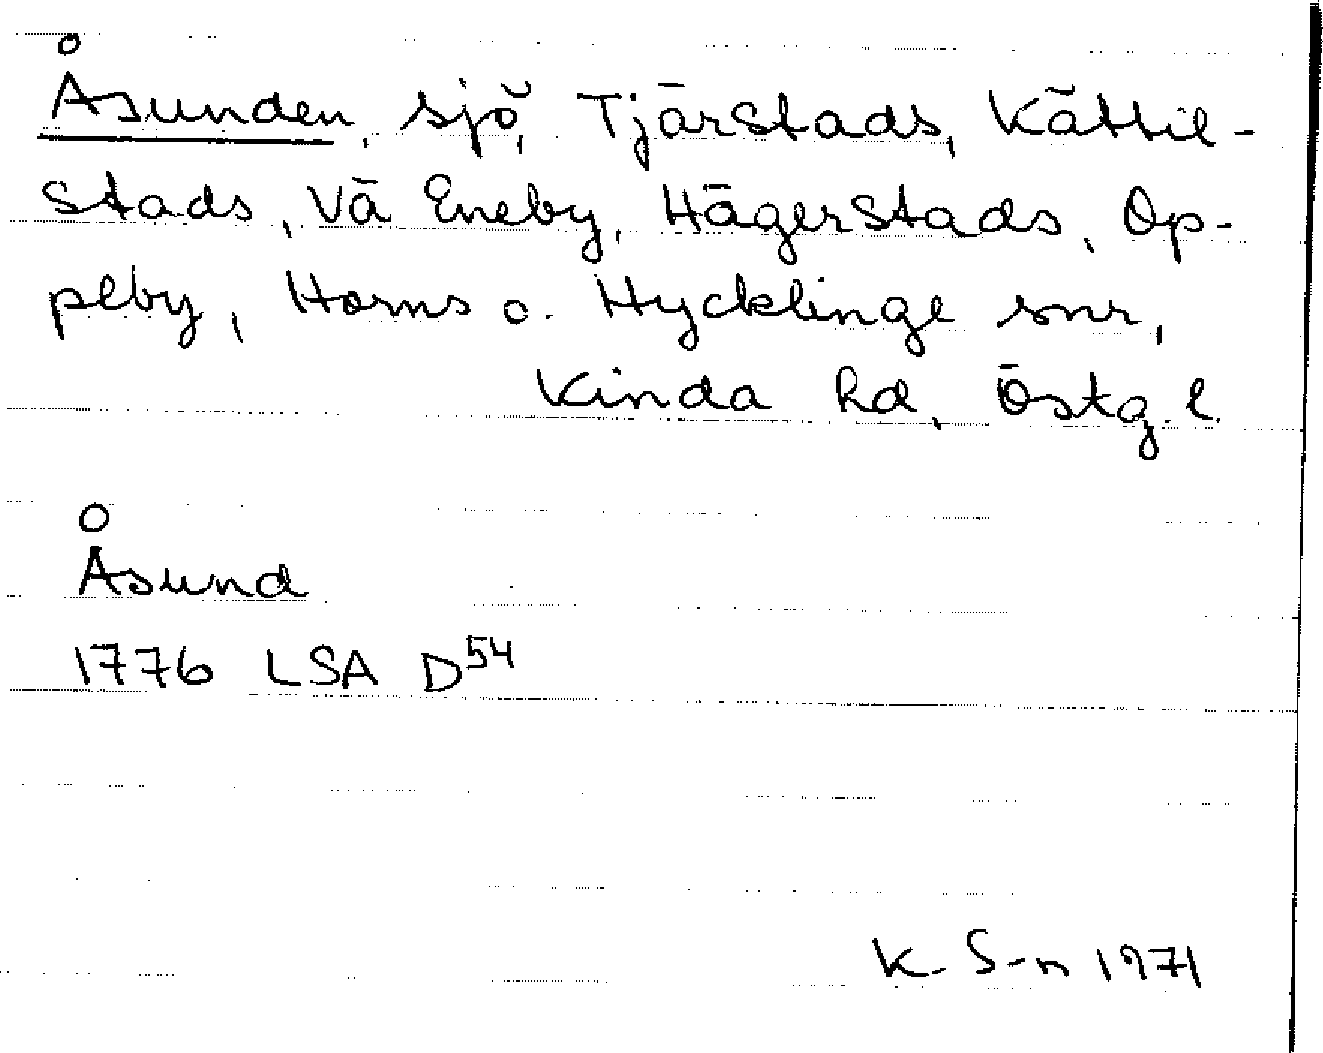 Åsunden, sjö, Tjärstads, Kättil-
stads, Vä Eneby, Hägerstads, Op-
peby, Horns o. Hycklinge snr,
Kinda hd, Östg. l.
Åsund
1776 LSA D54
K. S-n 1971